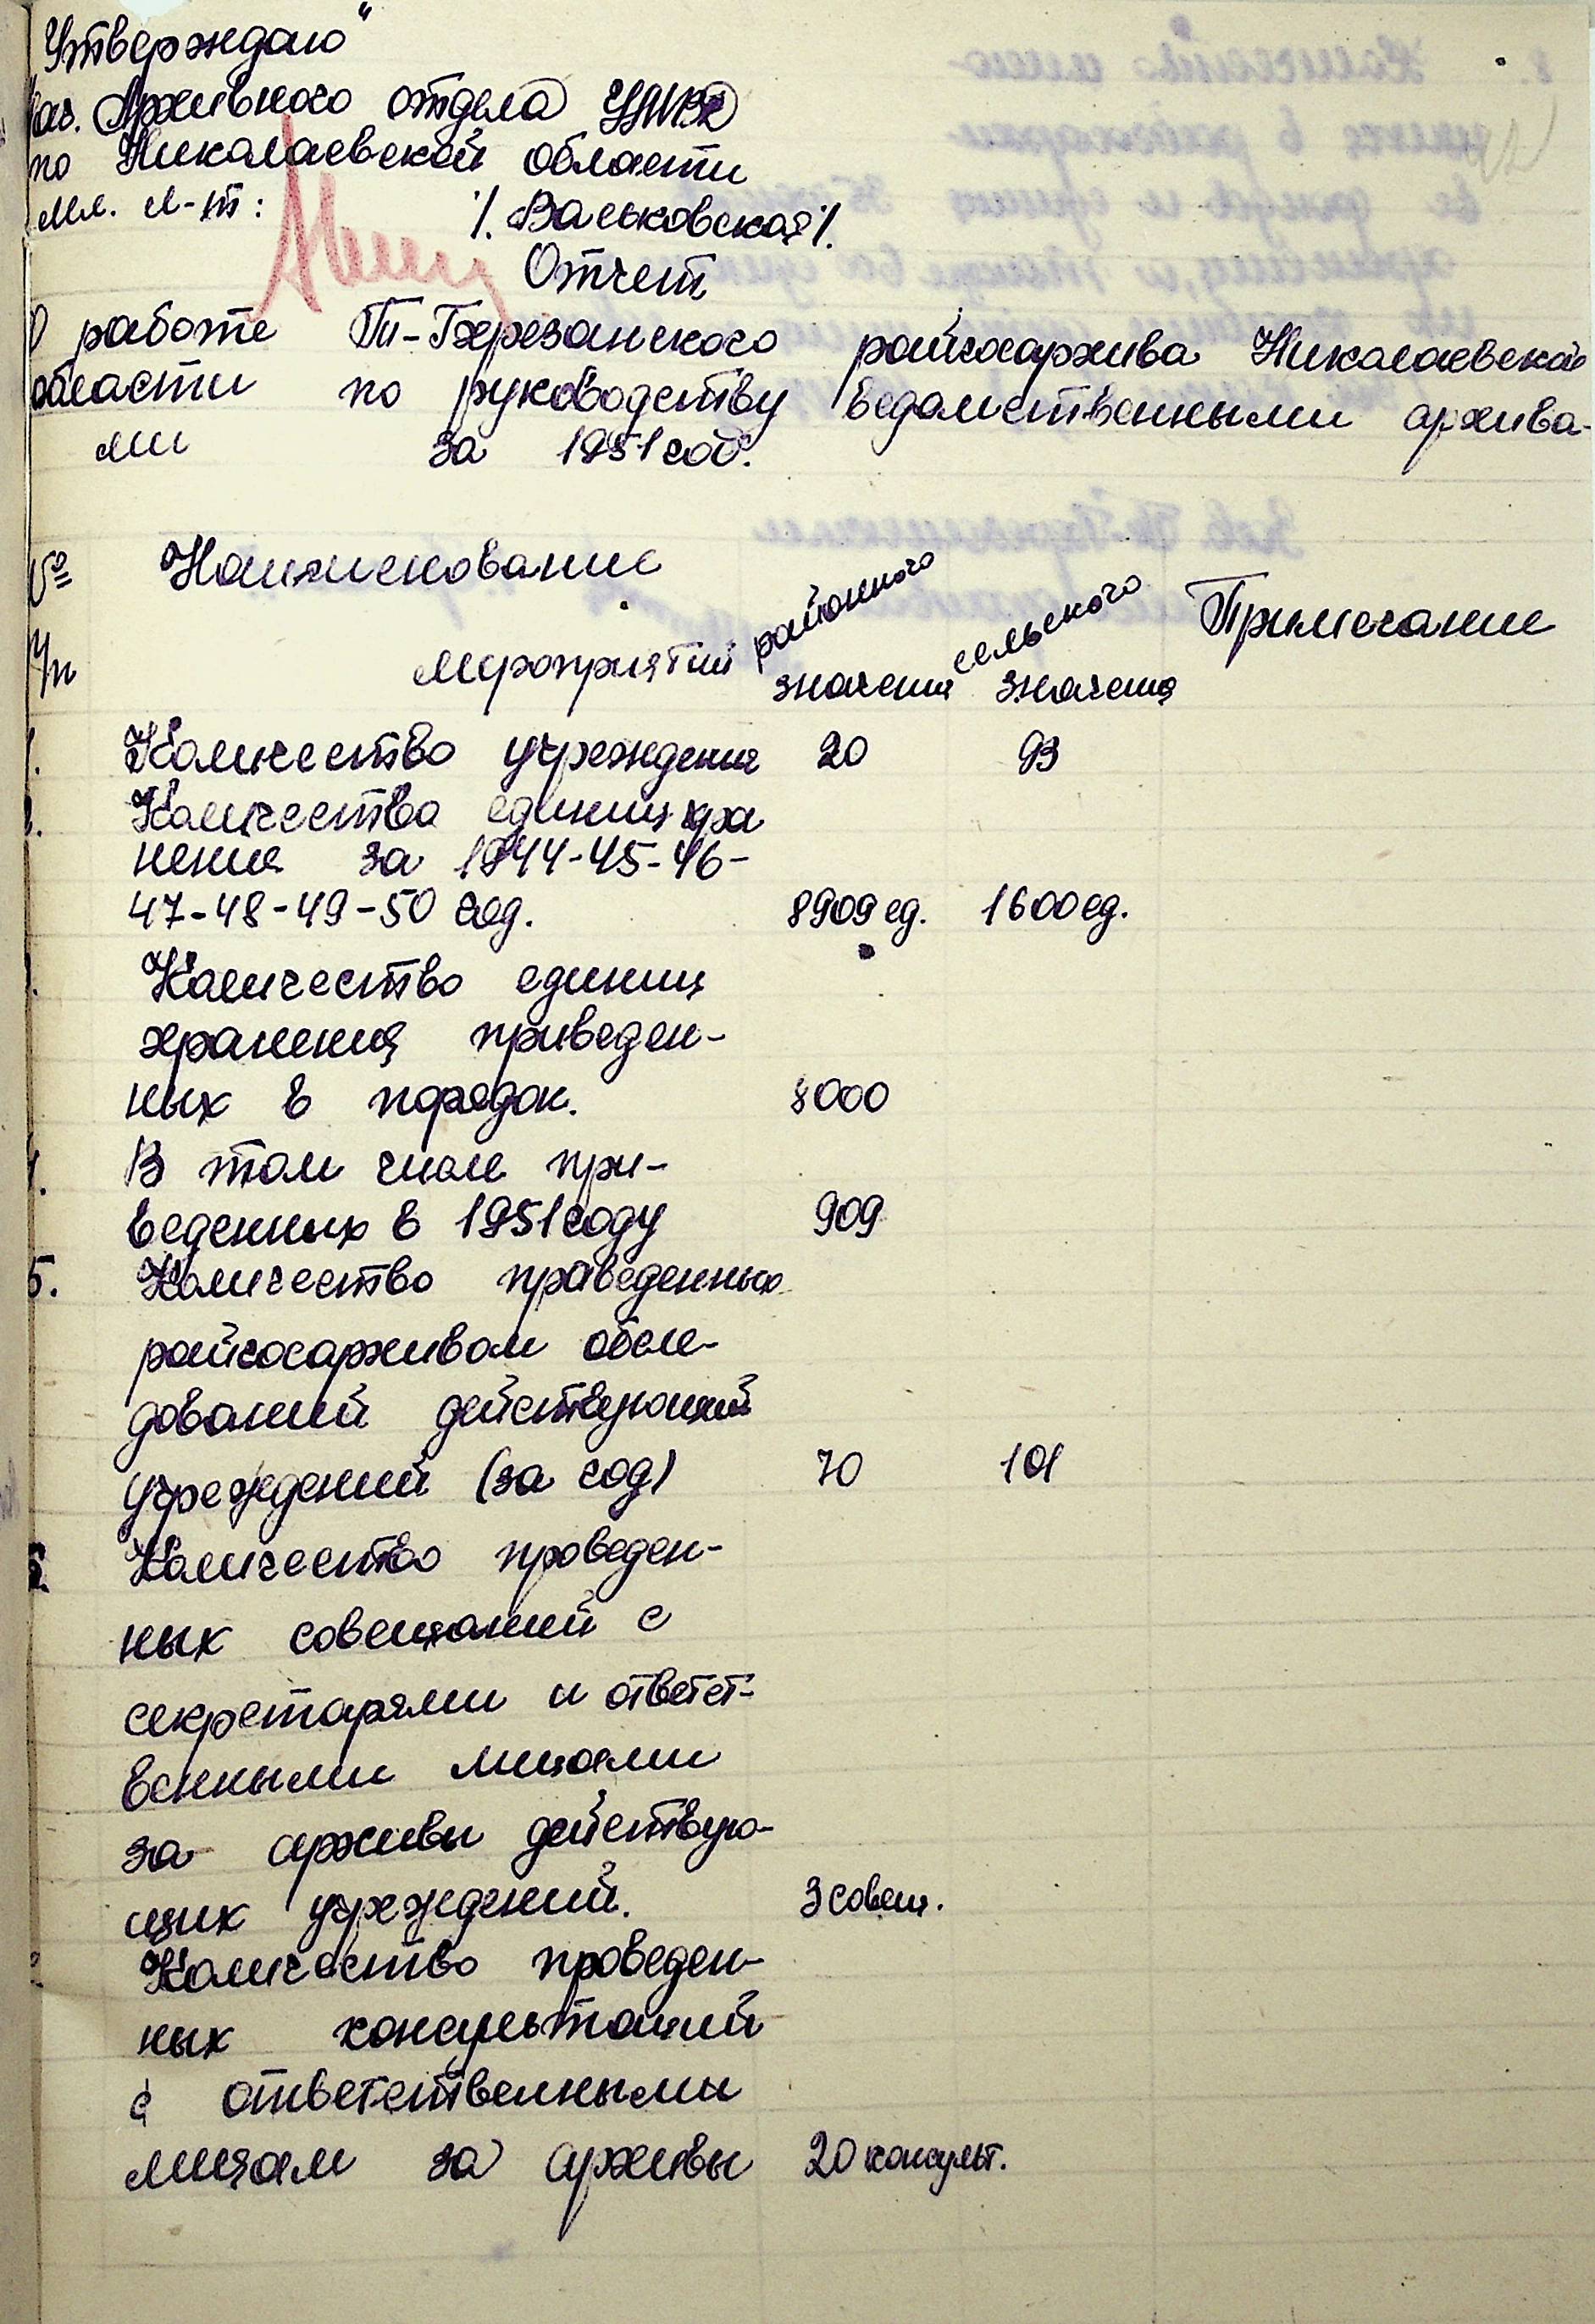 Утверждаю"
Нач. Архивного отдела УМВД
по Николаевской области
мл. л-т: /. Васьковская/.
Отчет
О работе Т-Березанского райгосархива Николаевской
области по руководству ведомственными архива-
ми за 1951 год.
№ Наименование районного сельского Примечание
п/п мероприятий значения значения
1. Количество учреждения 20 93
2. Количества единиц хра
нения за 1944-45-46-
47-48-49-50 год. 8909 ед. 1600 ед.
Количество единиц
хранения приведен-
ных в порядок. 8000
4. В том числе при-
веденных в 1951 году 909
5. Количество проведенных
райгосархивом обсле-
дований действующий
учреждений (за год) 70 101
6. Количество проведен-
ных совещаний с
секретарями и ответст-
венными лицами
за архивы действую-
щих учреждений. 3 совещ.
Количество проведен-
ных консультаций
с ответственными
лицам за архивы 20 консульт.